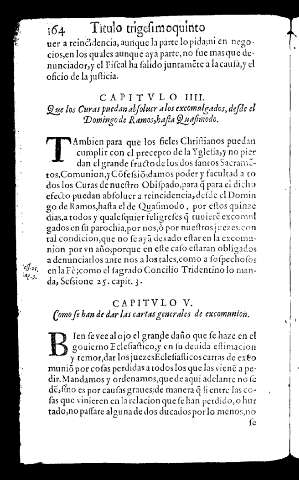 164 Titulo trigesimoquinto
uer a reincidencia, aunque la parte lo pida; ni en nego-
cios, en los quales aunque aya parte, no fue mas que de-
nunciador, y el Fiscal ha salido juntamẽte a la causa, y el
oficio de la justicia.
CAPITVLO IIII.
Que los Curas puedan absoluer a los excomulgados, desde el
Domingo de Ramos, hasta Quasimodo.
TAmbien para que los fieles Christianos puedan
cumplir con el precepto de la Yglesia, y no pier
dan el grande fructo de los dos santos Sacramẽ-
tos, Comunion, y Cõfesiõ, damos poder y facultad a to
dos los Curas de nuestro Obispado, para q̃ para el dicho
efecto puedan absoluer a reincidencia, desde el Domin
go de Ramos, hasta el de Quasimodo, por estos quinze
dias, a todos y qualesquier feligreses q̃ tuuierẽ excomul
gados en su parochia, por nos, ò por nuestros juezes, con
tal condicion, que no se aya dexado estar en la excomu-
nion por vn año, porque en este caso estaran obligados
a denunciarlos ante nos a los tales, como a sospechosos
en la Fè; como el sagrado Concilio Tridentino lo man-
da, Sessione 25. capit. 3.
CAPITVLO V.
Como se han de dar las cartas generales de excomunion.
BIen se vee al ojo el grande daño que se haze en el
gouierno Eclesiastico, y en su deuida estimacion
y temor, dar los juezes Eclesiasticos cartas de exco
munió por cosas perdidas a todos los que las vienẽ a pe-
dir. Mandamos y ordenamos, que de aqui adelante no se
dẽ, sino es por causas graues; de manera q̃ si entre las co-
sas que vinieren en la relacion que se han perdido, o hur
tado, no passare alguna de dos ducados por lo menos, no
se